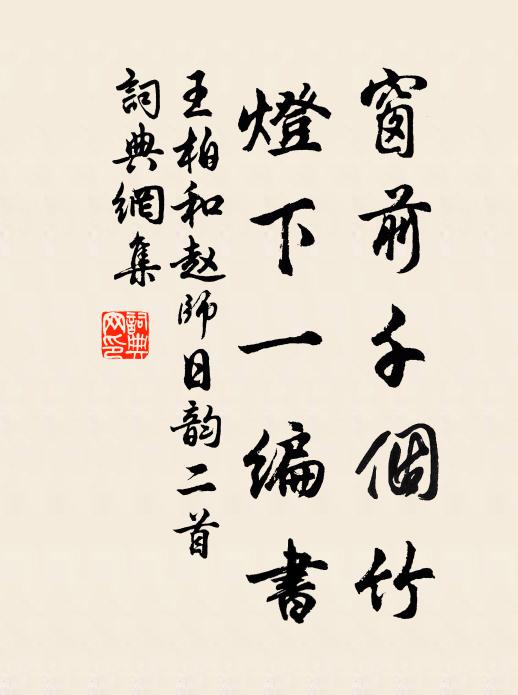 窗前千個竹
燈下一編書
王柏和赵師日韵二首
詞典網集
詞典網印